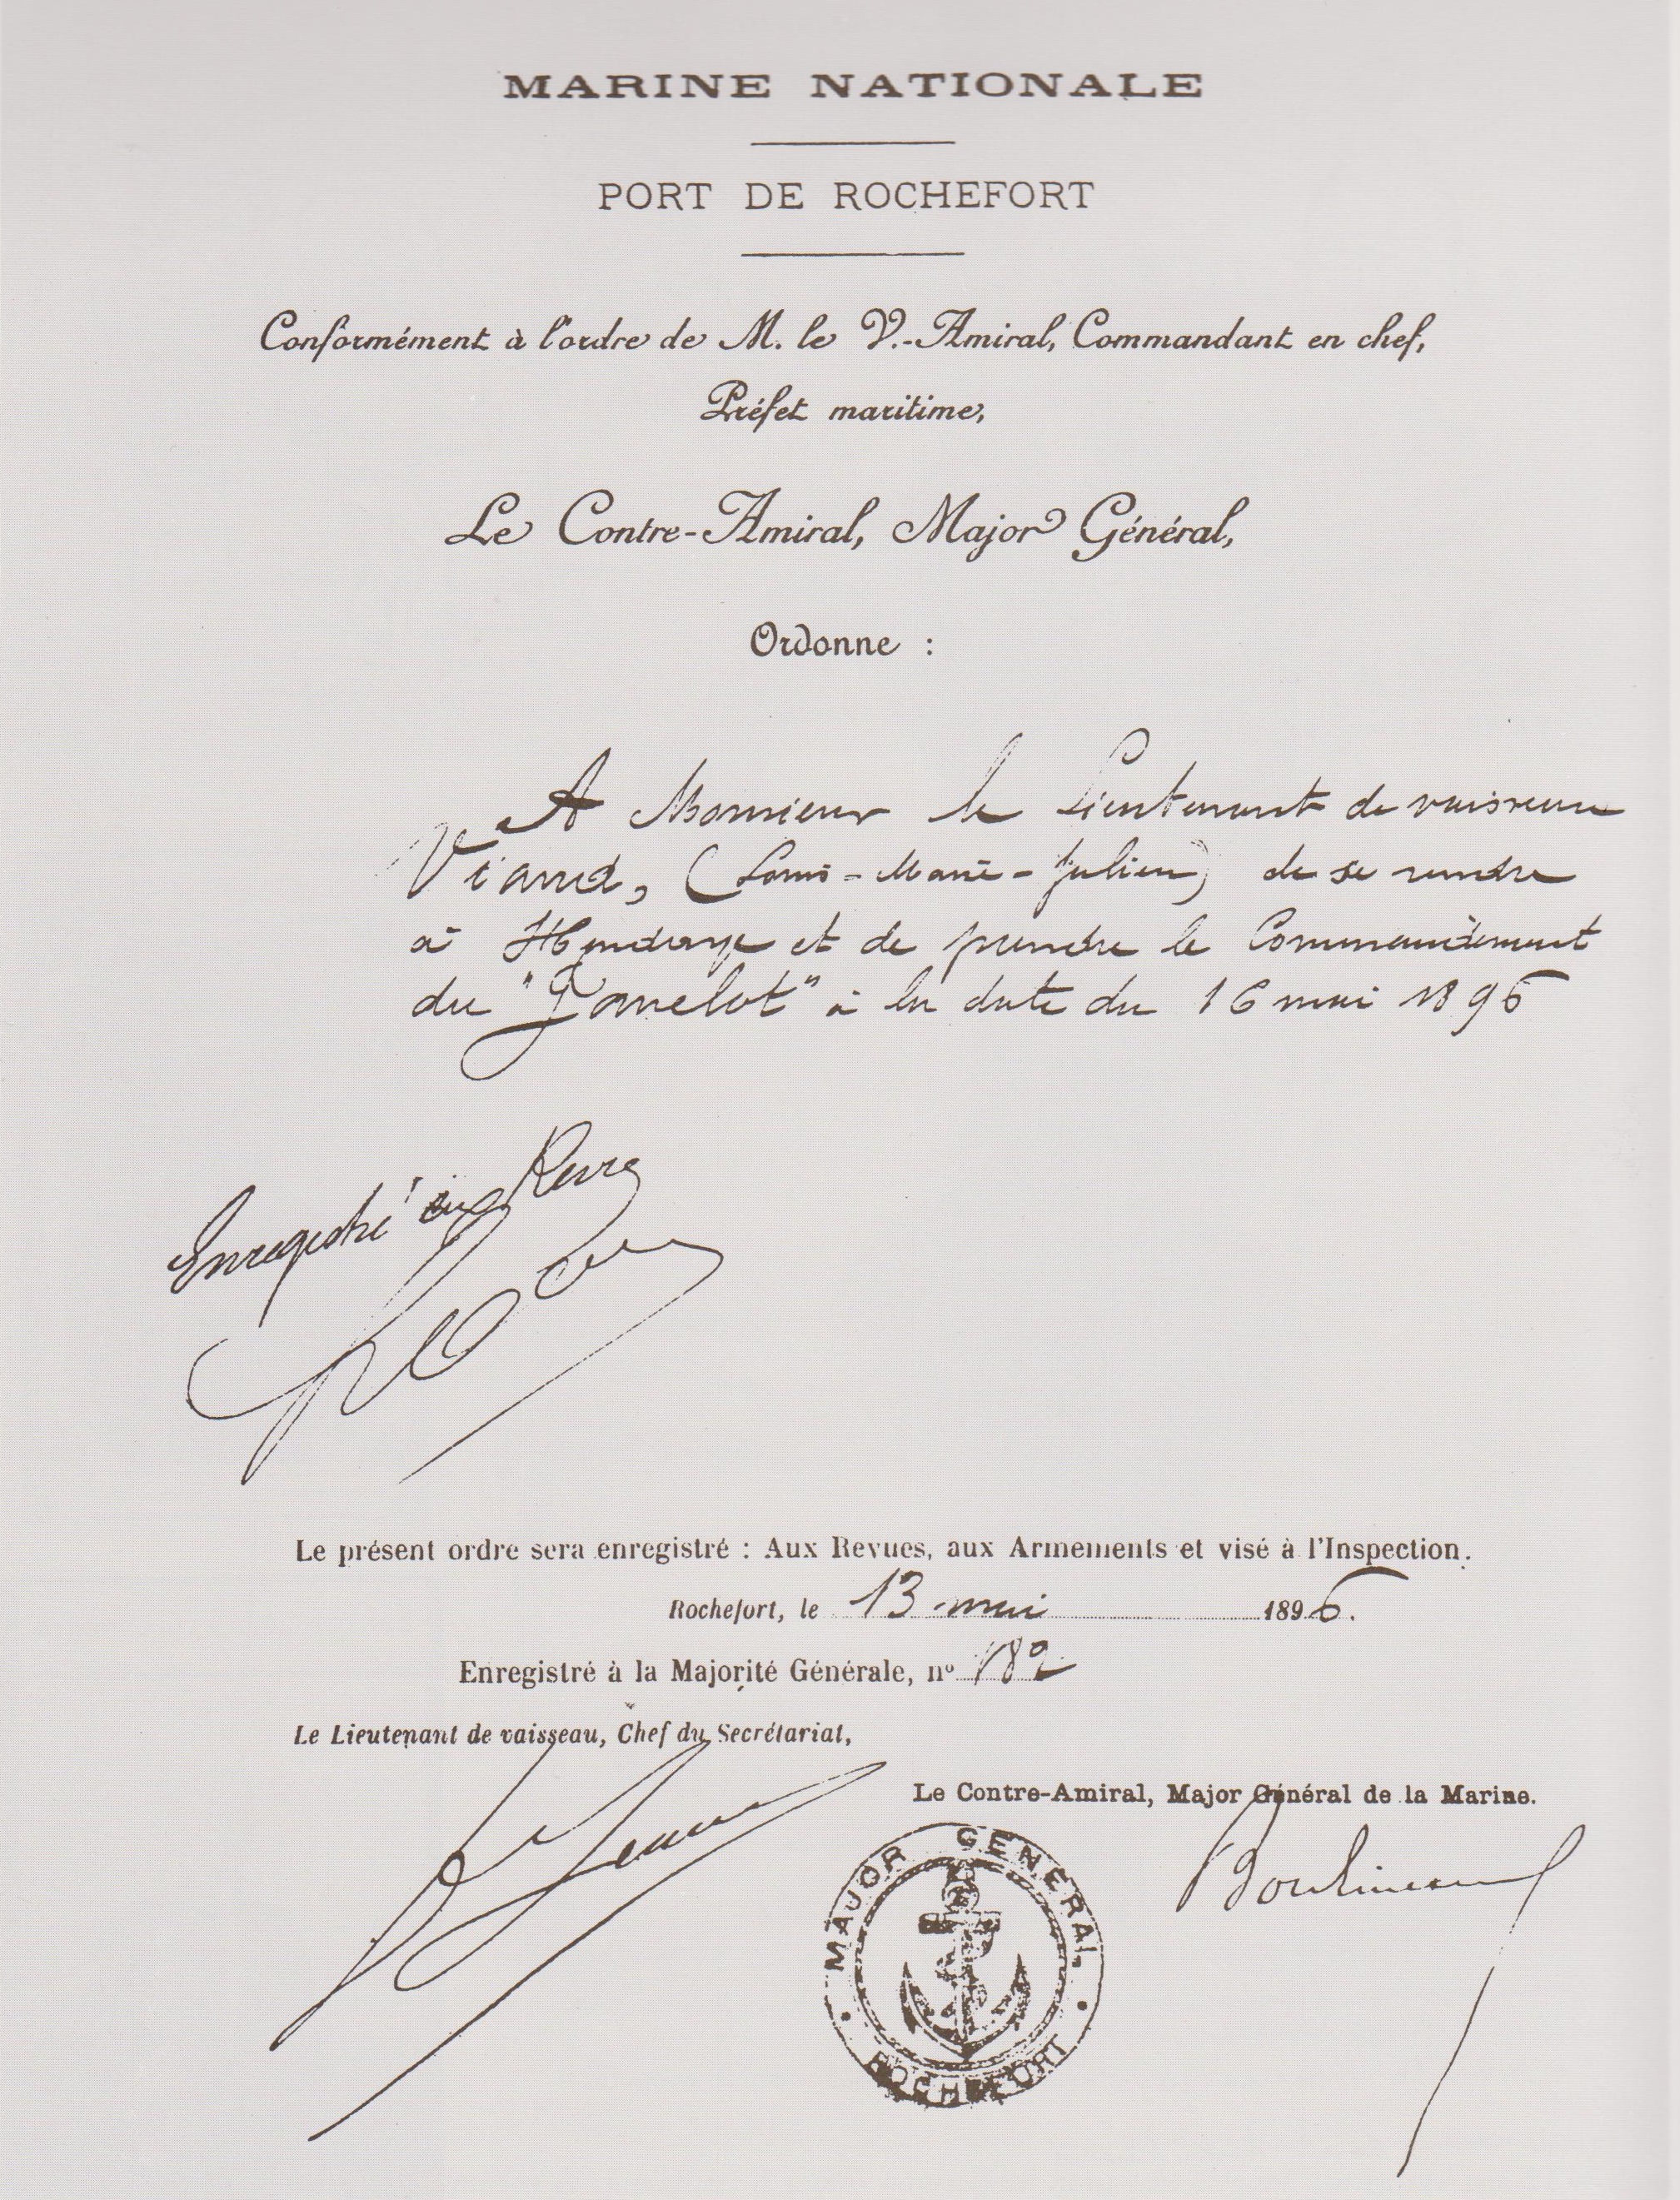 MARINE NATIONALE
PORT DE ROCHEFORT
Conformément à l'ordre de M. le V.-Amiral, Commandant en chef,
Préfet maritime,
Le Contre-Amiral, Major Général,
Ordonne :
A Monsieur le Lieutenant de vaisseau
Viaud, (Louis-Marie-Julien) de se rendre
à Hendaye et de prendre le Commandement
du "Javelot" à la date du 16 mai 1896
Enregistré aux Revues
Le présent ordre sera enregistré : Aux Revues, aux Armements et visé à l'Inspection.
Rochefort, le 13 mai 1896.
Enregistré à la Majorité Générale, nº 182
Le Lieutenant de vaisseau, Chef du Secrétariat,
Le Contre-Amiral, Major Général de la Marine.
MAJOR GÉNÉRAL
ROCHEFORT